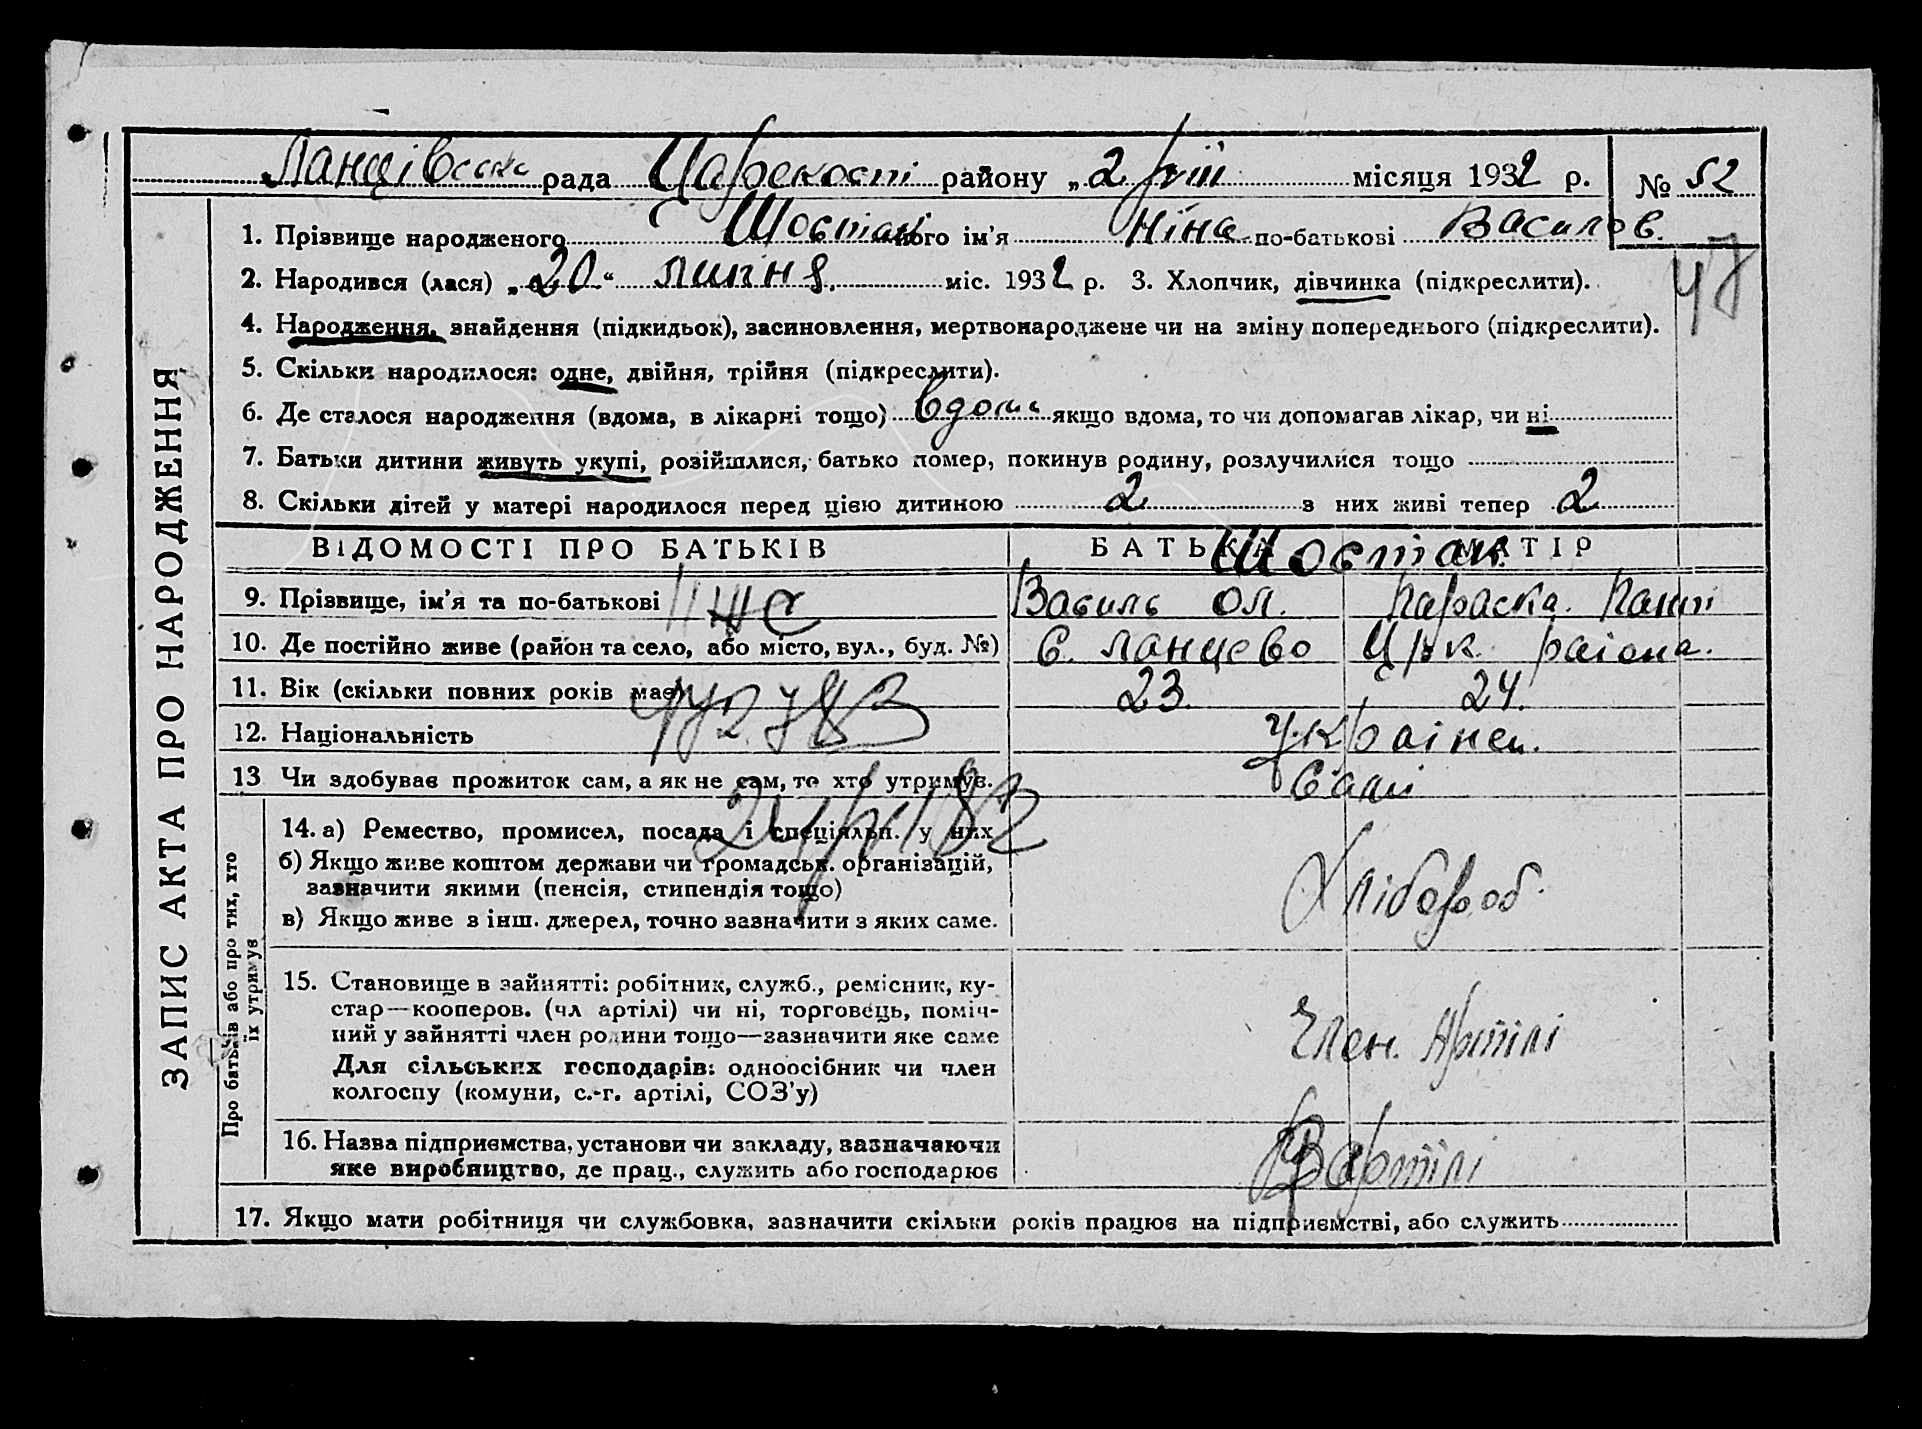 Ланцівська рада Царекост районy „2 VIII місяця 1932 р. № 52
1. Прізвище народженого Шостак його ім'я Ніна по-батькові Василов.
2. Народився (лася) „20" липня міс. 1932 р. 3. Хлопчик, дівчинка (підкреслити).
47
4. Народження, знайдення (підкидьок), засиновлення, мертвонароджене чи на зміну попереднього (підкреслити).
5. Скільки народилося: одне, двійня, трійня (підкреслити).
6. Де сталося народження (вдома, в лікарні тощо) вдома якщо вдома, то чи допомагав лікар, чи ні
7. Батьки дитини живуть укупі, розійшлися, батько помер, покинув родину, розлучилися тощо
8. Скільки дітей у матері народилося перед цією дитиною 2 з них живі тепер 2
ВІДОМОСТІ ПРО БАТЬКІВ БАТЬКА МАТІР
Шостак
9. Прізвище, ім'я та по-батькові Василь Ол. Параска Пант
10. Де постійно живе (район та село, або місто, вул., буд. №) с. Ланцево Црк. раіона.
11. Вік (скільки повних років має) 23. 24.
12. Національність Українец.
13 Чи здобуває прожиток сам, а як не сам, то хто утримує. Самі
14. а) Ремество, промисел, посада і спеціяльн. у них
б) Якщо живе коштом держави чи громадськ. організацій,
зазначити якими (пенсія, стипендія тощо)
Хлібороб.
в) Якщо живе з інш. джерел, точно зазначити з яких саме.
15. Становище в зайнятті: робітник, служб., ремісник, ку-
стар—кооперов. (чл артілі) чи ні, торговець, поміч-
ний у зайнятті член родини тощо—зазначити яке саме
Член. Артілі
Для сільських господарів: одноосібник чи член
колгоспу (комуни, с.-г. артілі, СОЗ'у)
16. Назва підприємства, установи чи закладу, зазначаючи
яке виробництво, де прац., служить або господарює
В артілі
17. Якщо мати робітниця чи службовка, зазначити скільки років працює на підприємстві, або служить
ЗАПИС АКТА ПРО НАРОДЖЕННЯ
Про батьків або про тих, хто
їх утримув